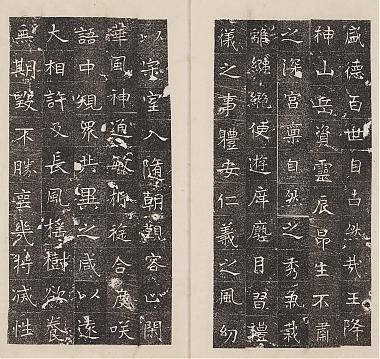 德百世自古然哉王降
神山岳資靈辰昴生不肅
之深宮稟自然之秀氣
離使遊庠塾目習禮
儀之事體安仁義之風幼
以宗室入隨朝覲容止閑
華風神遒敏折旋合度咲
語中規衆共異之咸以遠
大相許及長風搖樹欲養
無期毀不勝喪幾將滅性